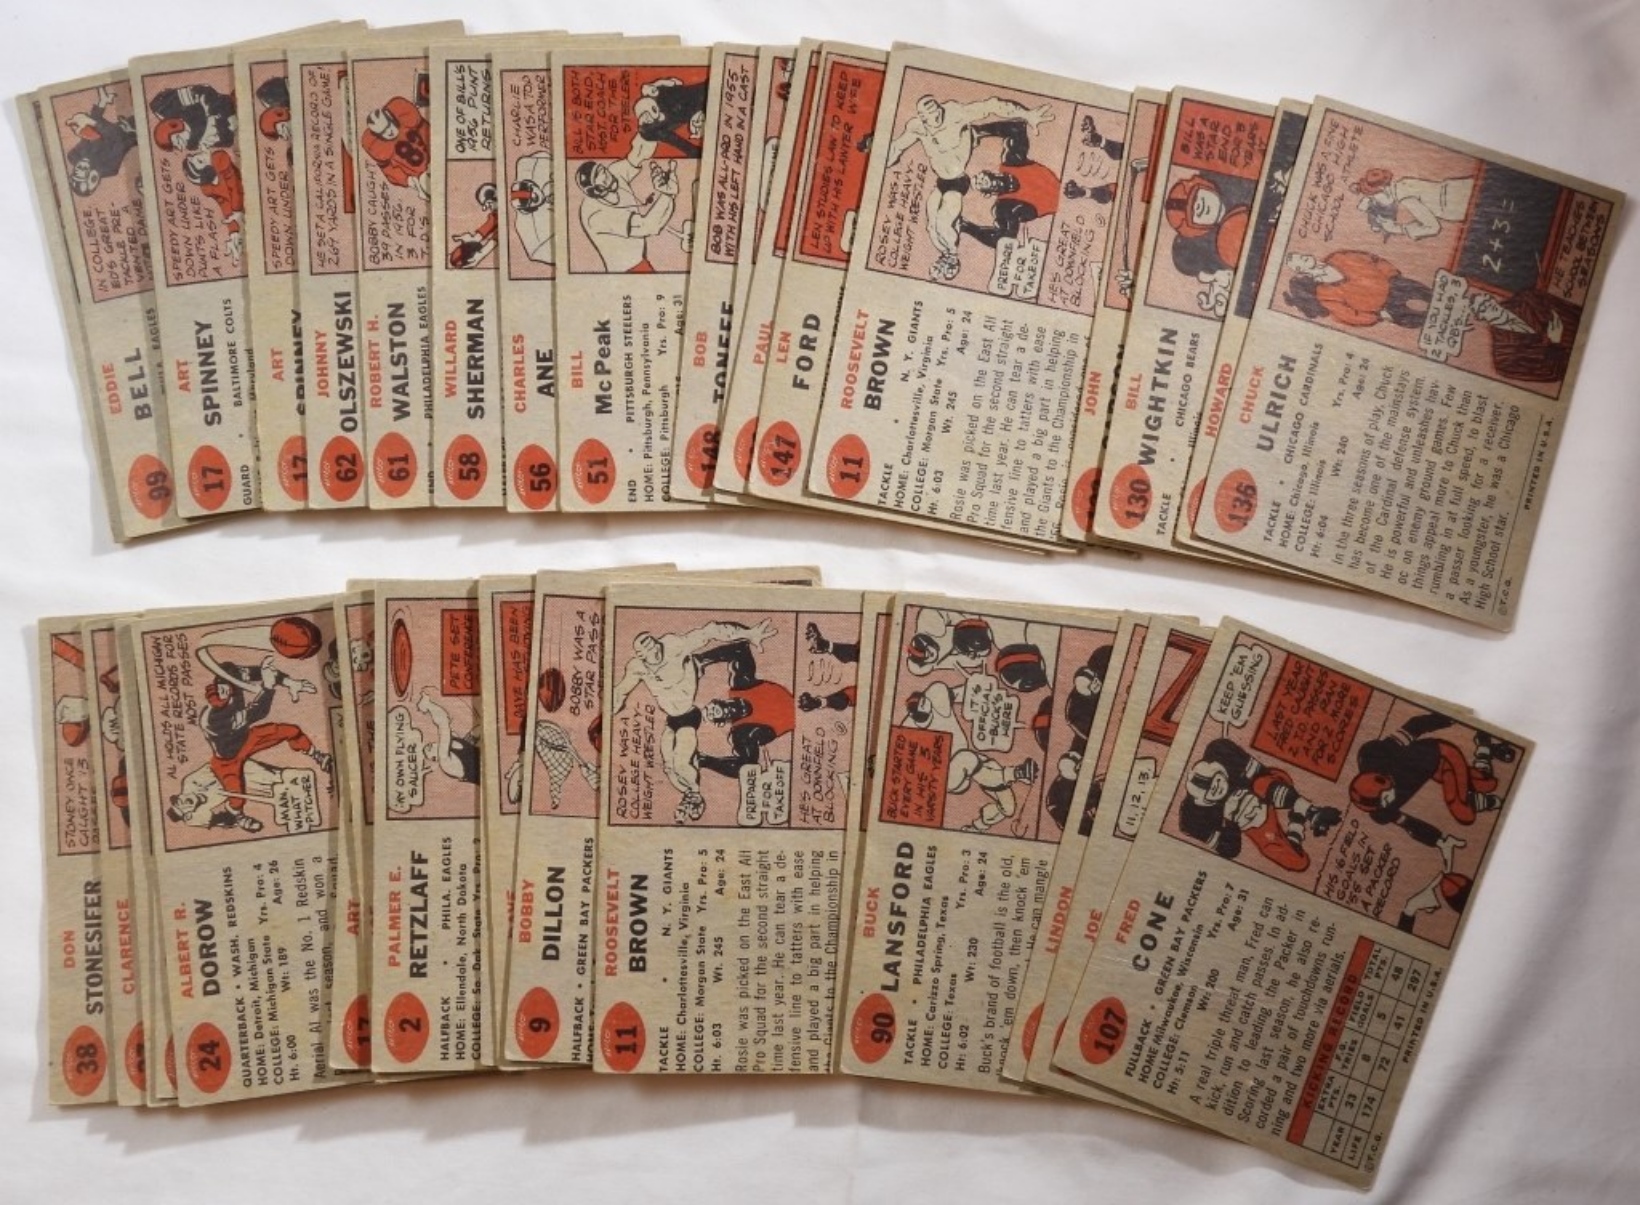 IN COLLEGE,
ED'S GREAT
TACKLE PRE-
VENTED A
EDDIE
BELL
99
SPEEDY ART GETS
DOWN UNDER
PUNTS LIKE
A FLASH
ART
SPINNEY
17
GUARD • BALTIMORE COLTS
SPEEDY ART GETS
DOWN UNDER
ART
SPINNEY
17
HE SET A CALIFORNIA RECORD OF
269 YARDS IN A SINGLE GAME!
JOHNNY
OLSZEWSKI
62
BOBBY CAUGHT
39 PASSES
IN 1956.
3 FOR
T.D.'S
ROBERT H.
WALSTON
PHILADELPHIA EAGLES
61
ONE OF BILL'S
1956 PUNT
RETURNS
WILLARD
SHERMAN
58
CHARLIE
WAS A TOP
PERFORMER
CHARLES
ANE
56
BILL IS BOTH
STAR END,
ASST. COACH
FOR THE
STEELERS
BILL
McPeak
51
END • PITTSBURGH STEELERS
HOME: Pittsburgh, Pennsylvania
COLLEGE: Pittsburgh Yrs. Pro: 9
Age: 31
BOB WAS ALL-PRO IN 1955
WITH HIS LEFT HAND IN A CAST
BOB
TONEFF
148
PAUL
LEN STUDIES LAW TO KEEP
UP WITH HIS LAWYER WIFE
LEN
FORD
147
ROSEY WAS A
COLLEGE HEAVY-
WEIGHT WRESTLER
PREPARE
FOR
TAKEOFF
HE'S GREAT
AT DOWNFIELD
BLOCKING
ROOSEVELT
BROWN
11
TACKLE • N. Y. GIANTS
HOME: Charlottesville, Virginia
COLLEGE: Morgan State Yrs. Pro: 5
Ht. 6:03 Wt. 245 Age: 24
Rosie was picked on the East All
Pro Squad for the second straight
time last year. He can tear a de-
fensive line to tatters with ease
and played a big part in helping
the Giants to the Championship in
JOHN
BILL
WAS A
STAR
END
FOR 3
YEARS
BILL
WIGHTKIN
130
TACKLE • CHICAGO BEARS
HOWARD
CHUCK WAS A FINE
CHICAGO HIGH
SCHOOL ATHLETE
2+3=
IF YOU HAD
2 TACKLES, 3
QB'S...
HE TEACHES
SCHOOL BETWEEN
SEASONS
CHUCK
ULRICH
136
TACKLE • CHICAGO CARDINALS
HOME: Chicago, Illinois
COLLEGE: Illinois Yrs. Pro: 4
Ht: 6:04 Wt: 240 Age: 24
In the three seasons of play, Chuck
has become one of the mainstays
of the Cardinal defense system.
He is powerful and unleashes hav-
oc on enemy ground games. Few
things appeal more to Chuck than
rumbling in at full speed, to blast
a passer looking for a receiver.
As a youngster, he was a Chicago
High School star.
©T.C.G. PRINTED IN U.S.A.
STONEY ONCE
CAUGHT 13
DON
STONESIFER
38
CLARENCE
AL HOLDS ALL MICHIGAN
STATE RECORDS FOR
MOST PASSES
MAN, WHAT A
PITCHER
ALBERT R.
DOROW
24
QUARTERBACK • WASH. REDSKINS
HOME: Detroit, Michigan
COLLEGE: Michigan State Yrs. Pro: 4
Ht: 6:00 Wt: 189 Age: 26
Aerial Al was the No. 1 Redskin
last season, and won a
ART
17
MY OWN FLYING
SAUCER
PETE SET
CONFERENCE
PALMER E.
RETZLAFF
2
HALFBACK • PHILA. EAGLES
HOME: Ellendale, North Dakota
COLLEGE: So. Dak. State Yrs. Pro: 2
BOBBY WAS A
STAR PASS
BOBBY
DILLON
9
HALFBACK • GREEN BAY PACKERS
ROSEY WAS A
COLLEGE HEAVY-
WEIGHT WRESTLER
PREPARE
FOR
TAKEOFF
HE'S GREAT
AT DOWNFIELD
BLOCKING
ROOSEVELT
BROWN
11
TACKLE • N. Y. GIANTS
HOME: Charlottesville, Virginia
COLLEGE: Morgan State Yrs. Pro: 5
Ht. 6:03 Wt. 245 Age: 24
Rosie was picked on the East All
Pro Squad for the second straight
time last year. He can tear a de-
fensive line to tatters with ease
and played a big part in helping
the Giants to the Championship in
BUCK STARTED
EVERY GAME
IN HIS 3
VARSITY YEARS
IT'S
OFFICIAL
-BUCK'S
HERE
BUCK
LANSFORD
90
TACKLE • PHILADELPHIA EAGLES
HOME: Carizzo Spring, Texas
COLLEGE: Texas Yrs. Pro: 3
Ht: 6:02 Wt: 230 Age: 24
Buck's brand of football is the old,
knock 'em down, then knock 'em
He can mangle
LINDON
11, 12, 13,
JOE
KEEP 'EM
GUESSING
LAST YEAR
FRED CAUGHT
2 T.D. PASSES
AND RAN
FOR 2 MORE
SCORES
HIS 6 FIELD
GOALS IN
'55 SET
A PACKER
RECORD
FRED
CONE
107
FULLBACK • GREEN BAY PACKERS
HOME Milwaukee, Wisconsin
COLLEGE: Clemson Yrs. Pro: 7
Ht: 5:11 Wt: 200 Age: 31
A real triple threat man, Fred can
kick, run and catch passes. In ad-
dition to leading the Packer in
Scoring last season, he also re-
corded a pair of touchdowns run-
ning and two more via aerials.
KICKING RECORD
YEAR EXTRA PTS. F.G. TRIES FIELD GOALS TOTAL PTS.
YEAR 33 8 5 48
LIFE 174 72 41 297
©T.C.G. PRINTED IN U.S.A.